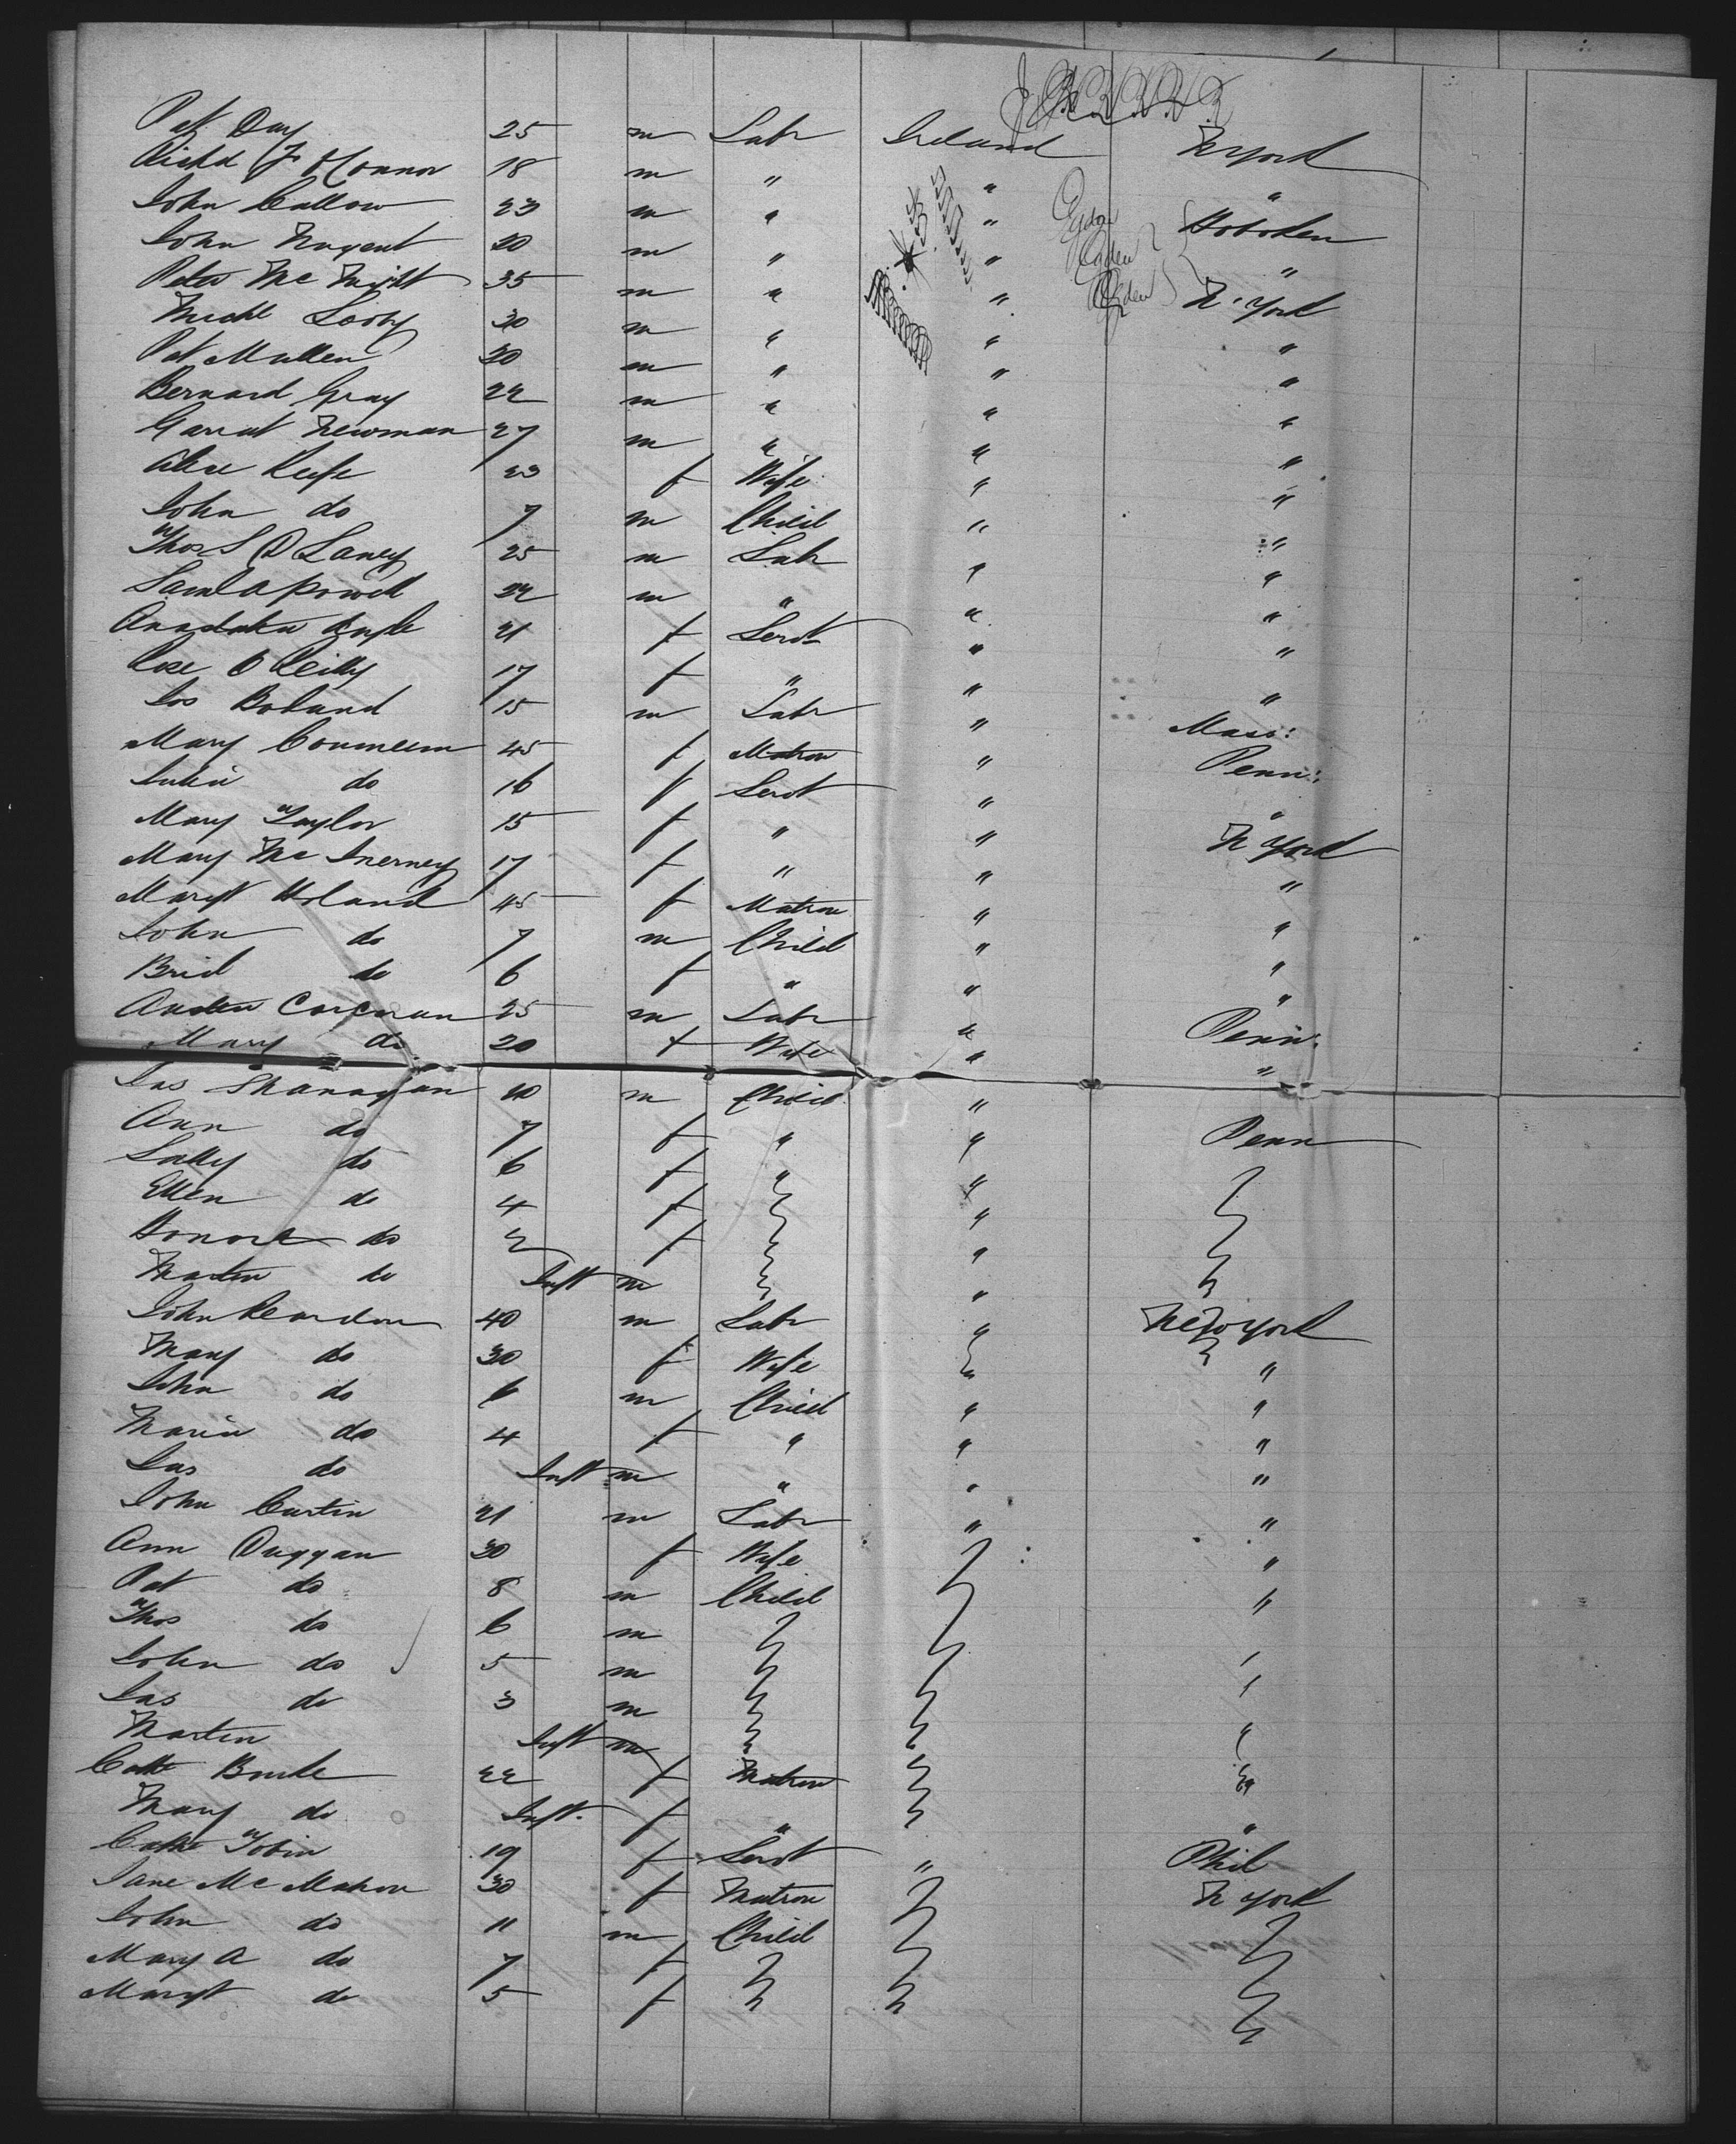 Pat Day 25 m Labr Ireland N York
Richd F O Connor 18 m " " "
John Callow 23 m " " Hoboken
John Nugent 20 m " " "
Peter Mc 35 m " " N. York
Michl 30 m " " "
Pat Mullen 20 m " " "
Bernard Gray 22 m " " "
Garrat Newman 27 m " " "
Alice Keefe 23 f Wife " "
John do 7 m Child " "
Thos S O Laney 25 m Labr " "
Saml A Powell 22 m " " "
21 f Servt " "
Rose O Reilly 17 f " " "
Jos Boland 15 m Labr " Mass:
Mary 45 f Matron " Penn:
Julia do 16 f Servt " "
Mary Taylor 15 f " " N York
Mary Mc Inerney 17 f " " "
Margt 45 f Matron " "
John do 7 m Child " "
Brid do 6 f " " "
Austin Corcoran 25 m Labr " Penn:
Mary do 20 f Wife " "
Jas 10 m Child "
Ann do 7 f " " Penn
Sally do 6 f " "
Ellen do 4 f "
Honora do 2 f "
Martin do Inft m "
John Reardon 40 m Labr " New York
Mary do 30 f Wife "
John do 6 m Child " "
Maria do 4 f " " "
Jas do Inft m " " "
John Curtin 21 m Labr " "
Ann Duggan 30 f Wife "
Pat do 8 m Child "
Thos do 6 m
John do 5 m
Jas do 3 m
Martin Inft m
Cathe Burke 22 f Matron
Mary do Inft. f " "
Cathe Tobin 19 f Servt " Phil
Jane Mc Mahon 30 f Matron N York
John do 11 m Child
Mary A do 7 f
Margt do 5 f